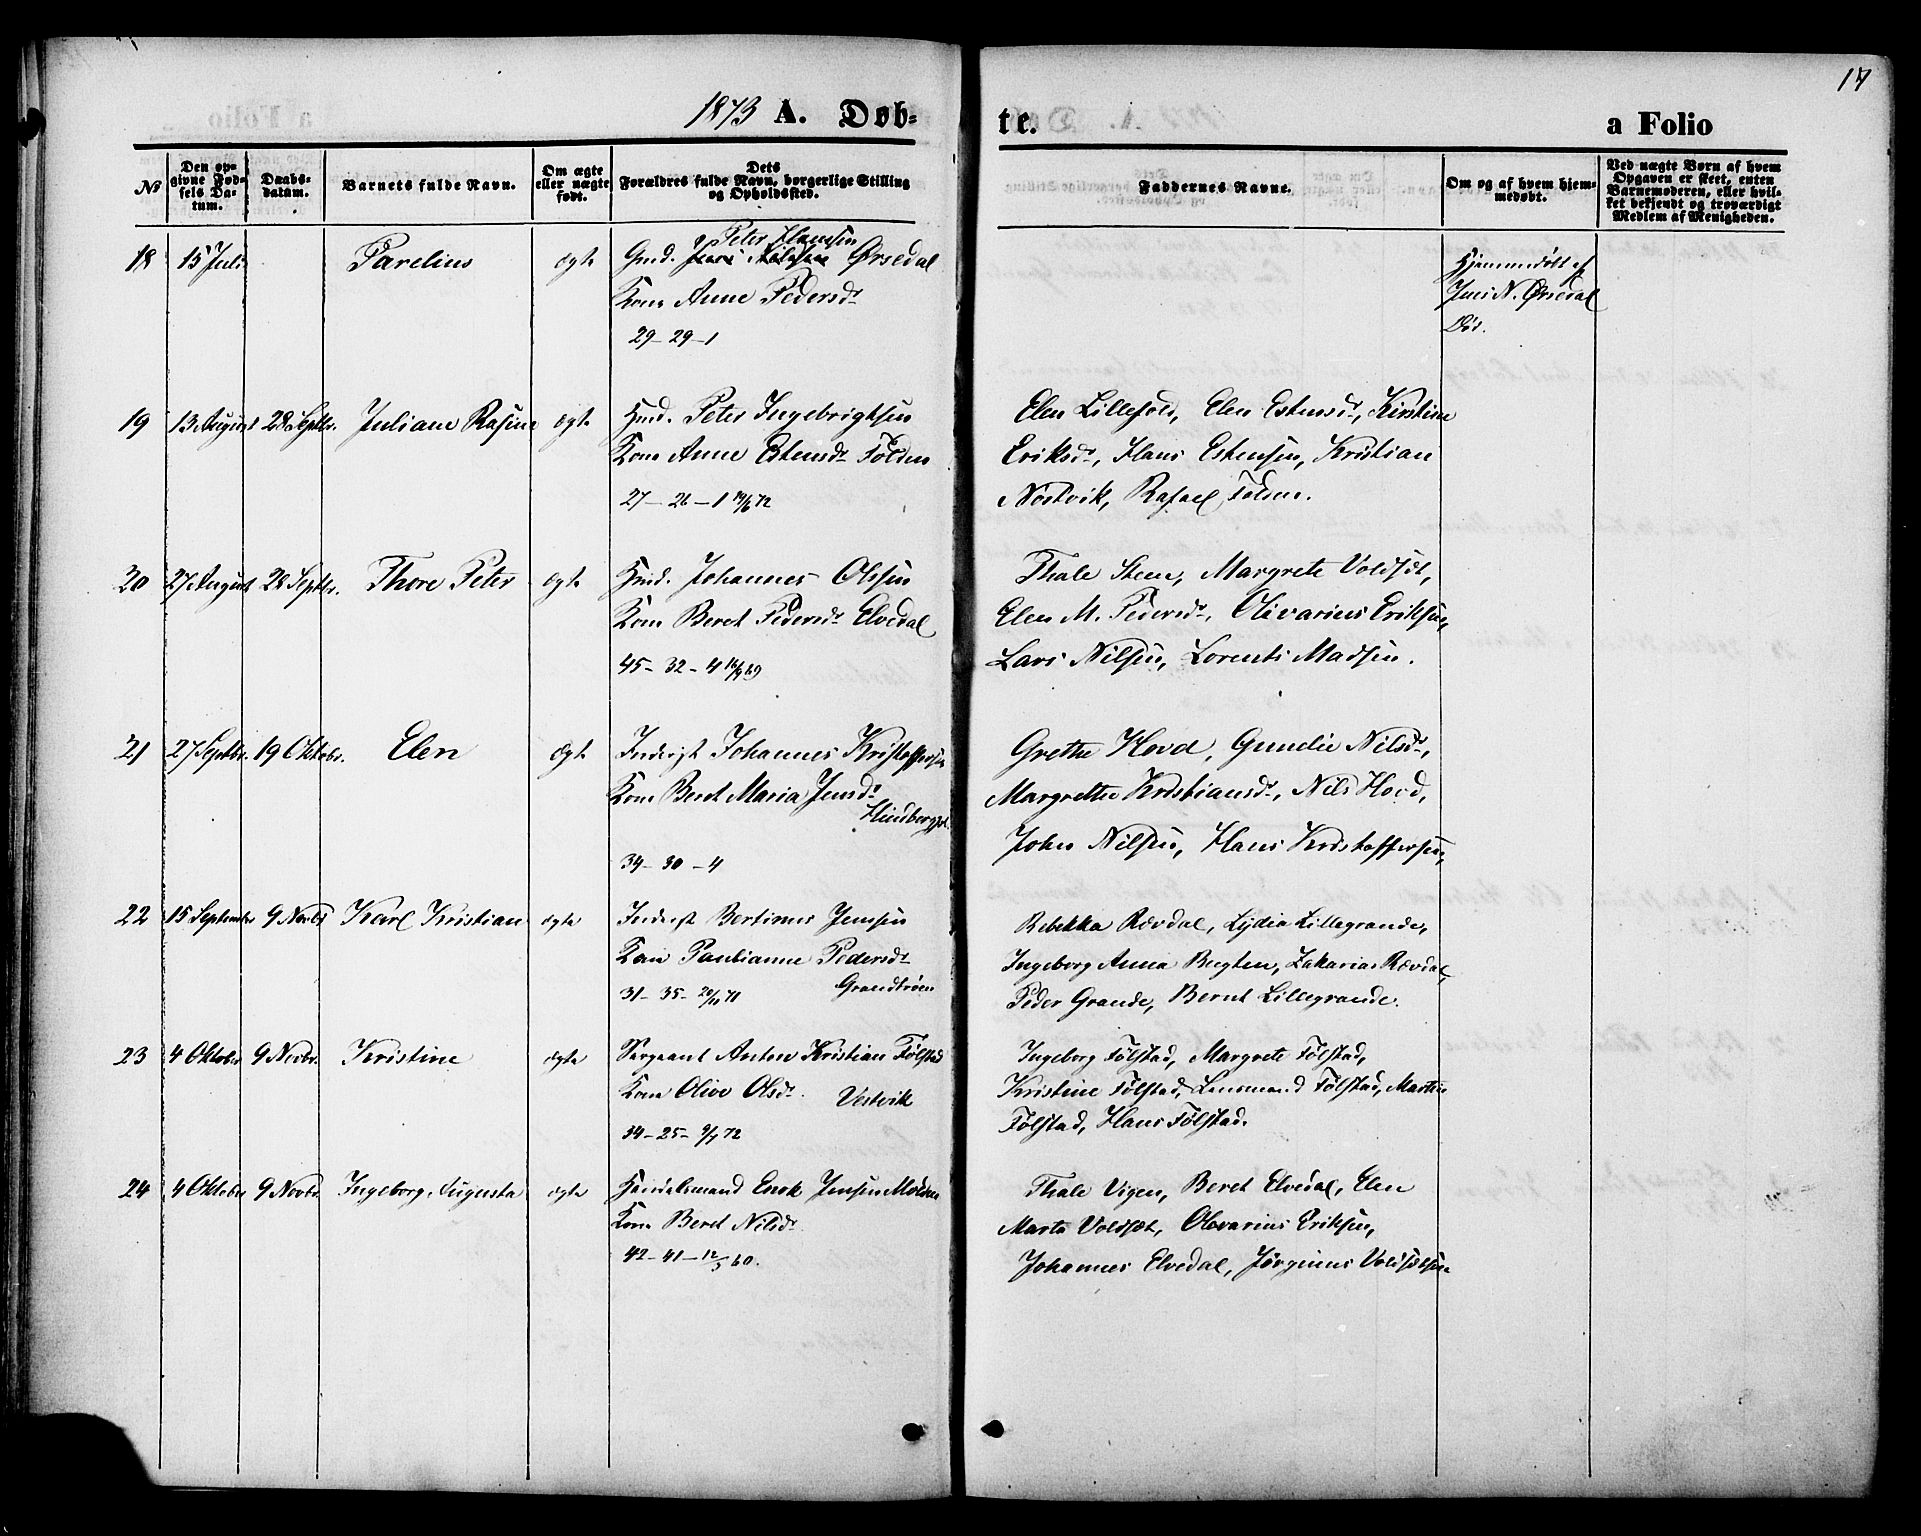 17
1873 A. Døb-
te.
a Folio
No
Den op-
givne Fød-
sels Da-
tum.
Daabs-
datum.
Barnets fulde Navn.
Om ægte
eller uægte
født.
Dets
Forældres fulde Navn, borgerlige Stilling
og Opholdssted.
Faddernes Navne.
Om og af hvem hjem-
medøbt.
Ved uægte Børn af hvem
Opgaven er skeet, enten
Barnemoderen, eller hvil-
ket bekjendt og troværdigt
Medlem af Menigheden.
18 15 Juli Parelius ægte
Peter Hansen
Gmd. Ørsedal
Kone Anne Pedersdt
29 - 29 - 1
Hjemmedøbt af
Jens N. Ørsedal
Død.
19 13 August 28 Septbr. Juliane Rasine ægte
Hmd. Peter Ingebrigtsen
Kone Anne Estensdt Folden
27 - 26 - 1 19/6 72
Elen Lillefold, Elen Estensdt, Kirstine
Eriksdt, Hans Estensen, Kristian
Nostvik, Rafael Folden.
20 27 August 28 Septbr. Thore Peter ægte
Hmd. Johannes Olssen
Kone Beret Pedersdt Elvedal
45 - 32 - 4 16/9 69
Thale Steen, Margrete Voldset,
Elen M. Pedersdt, Olivarius Eriksen,
Lars Nilsen, Lorents Madsen.
21 27 Septbr. 19 Oktobr. Elen ægte
Inderst Johannes Kristoffersen
Kone Beret Maria Jensdt
Hindbergpl.
34 - 30 - 4
Grethe Hovd, Gundie Nilsdt,
Margrethe Kristiansdt, Nils Hovd,
John Nilsen, Hans Kristoffersen,
22 15 September 9 Novbr Karl Kristian ægte
Inderst Bertinus Jensen
Kone Paulianne Pedersdt
Grandtrøen
31 - 35 - 20/11 71
Rebekka Rævdal, Lydia Lillegrande,
Ingeborg Anna Bugten, Zakarias Rævdal,
Peder Grande, Bernt Lillegrande.
23 4 Oktober 9 Novbr. Kristine ægte
Sergeant Anton Kristian Følstad
Kone Olive Olsdt. Vestvik
34 - 25 - 9/7 72
Ingeborg Følstad, Margrete Følstad,
Kristine Følstad, Lensmand Følstad, Martin
Følstad, Hans Følstad.
24 4 Oktober 9 Novbr Ingeborg Augusta ægte
Handelsmand Enok Jensen Moldern
Kone Beret Nilsdt
42 - 41 - 12/5 60.
Thale Vigen, Beret Elvedal, Elen
Marta Voldset, Olavarius Eriksen,
Johannes Elvedal, Jørginus Voldsetsen